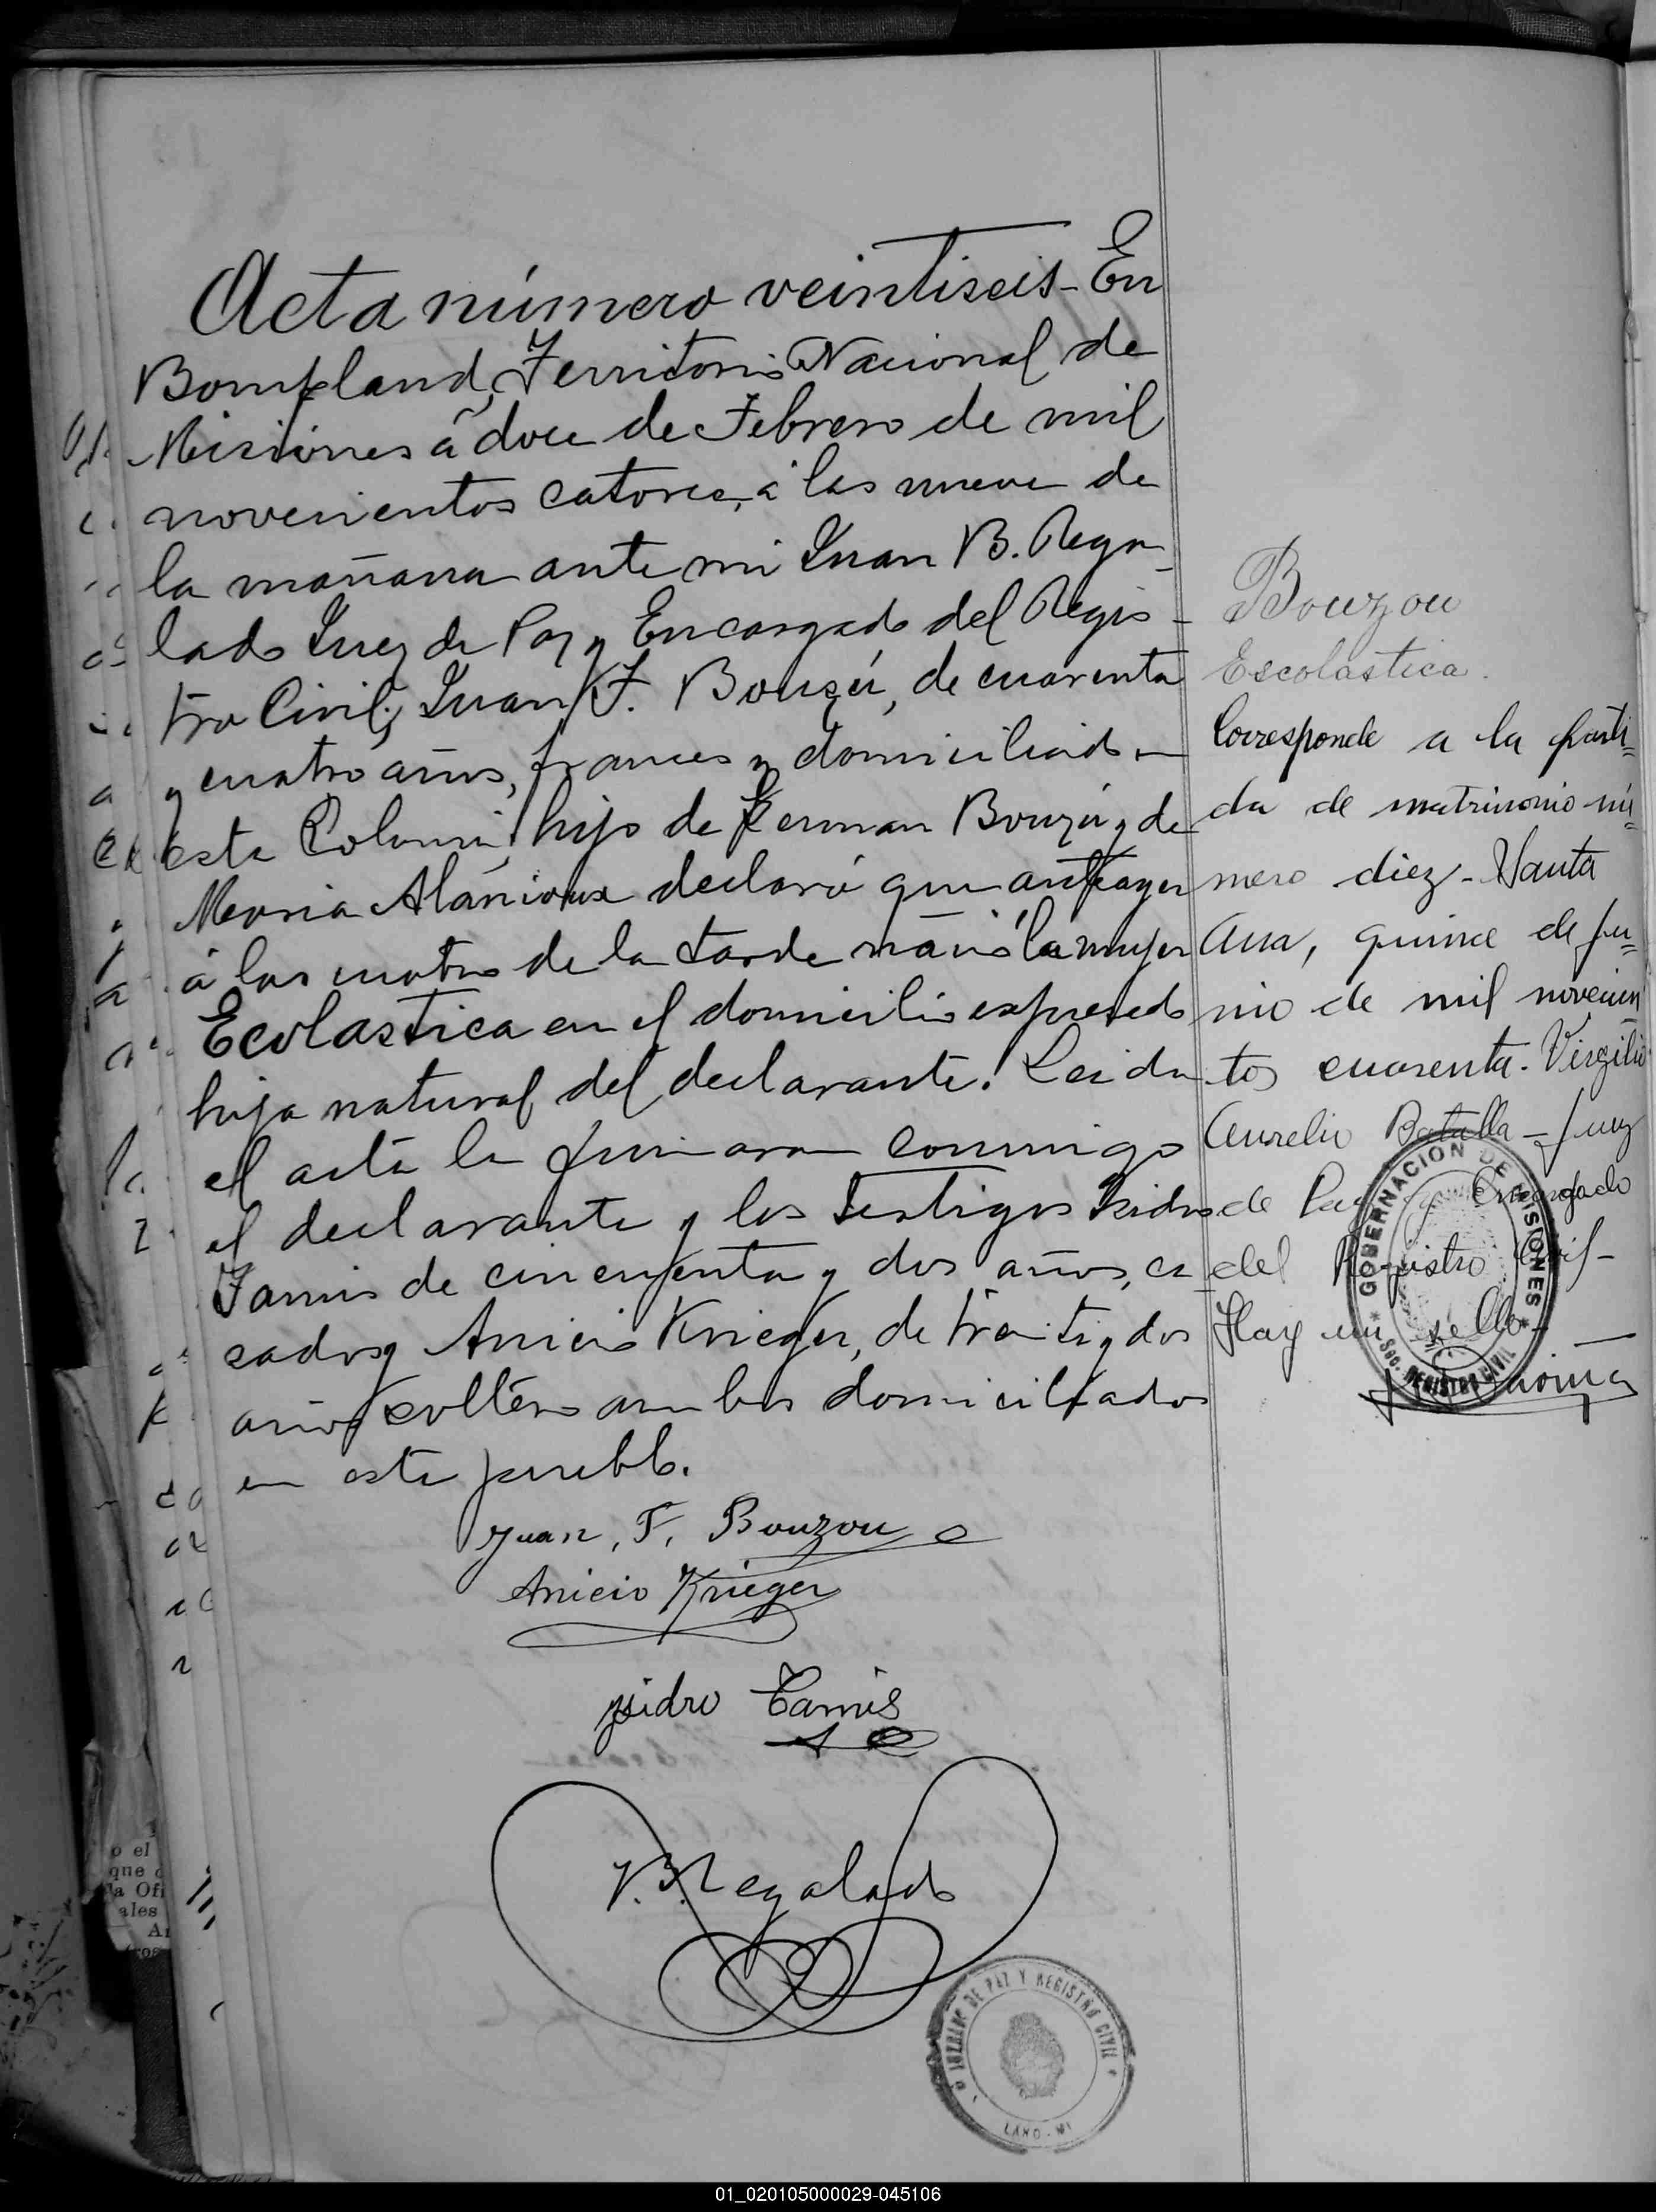 Acta número veintiseis - En
Bompland, Territorio Nacional de
Misiones á doce de Febrero de mil
novecientos catorce, á las nueve de
la mañana ante mi Juan B. Rega-
lado Juez de Paz y Encargado del Regis-
tro Civil, Juan F. Bouzú, de cuarenta
y cuatro años, frances y domiciliado en
esta Colonia, hijo de German Bouzú y de
Maria declaró que antiayer
á las cuatro de la tarde nació la mujer
Ecolastica en el domicilio expresado
hija natural del declarante. Leida
el acta la firmaron conmigo
el declarante y los testigos Isidro
Tamis de cincuenta y dos años, ca-
sado y Anicio Krieger, de treinta y dos
años soltero ambos domiciliados
en este pueblo.
Juan, F, Bouzou
Anicio Krieger
Isidro Tamis
J.B. Regalado
JUZGADO DE PAZ Y REGISTRO CIVIL
Bouzou
Escolastica.
Corresponde a la parti=
da de matrimonio nú=
mero diez - Santa
Ana, quince de ju=
nio de mil novecien
tos cuarenta. Virgilio
Aurelio Batalla - Juez
de Paz y Encargado
del Registro Civil -
Hay un sello -
GOBERNACION DE MISIONES
SEC. REGISTRO CIVIL
o el
que
la Ofi
ales
01_020105000029-045106